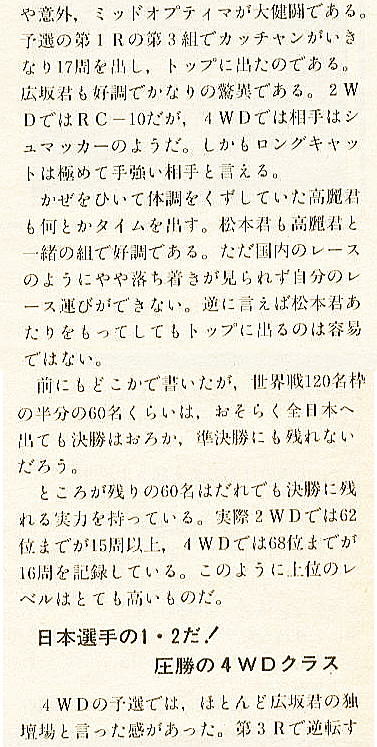 や意外，ミッドオプティマが大健闘である。
予選の第1Rの第3組でカッチャンがいき
なり17周を出し，トップに出たのである。
広坂君も好調でかなりの驚異である。2W
DではRC−10だが，4WDでは相手はシ
ュマッカーのようだ。しかもロングキャッ
トは極めて手強い相手と言える。
　かぜをひいて体調をくずしていた高麗君
も何とかタイムを出す。松本君も高麗君と
一緒の組で好調である。ただ国内のレース
のようにやや落ち着きが見られず自分のレ
ース運びができない。逆に言えば松本君あ
たりをもってしてもトップに出るのは容易
ではない。
　前にもどこかで書いたが，世界戦120名枠
の半分の60名くらいは，おそらく全日本へ
出ても決勝はおろか，準決勝にも残れない
だろう。
　ところが残りの60名はだれでも決勝に残
れる実力を持っている。実際2WDでは62
位までが15周以上，4WDでは68位までが
16周を記録している。このように上位のレ
ベルはとても高いものだ。
日本選手の1・2だ！
圧勝の4WDクラス
　4WDの予選では，ほとんど広坂君の独
壇場と言った感があった。第3Rで逆転す